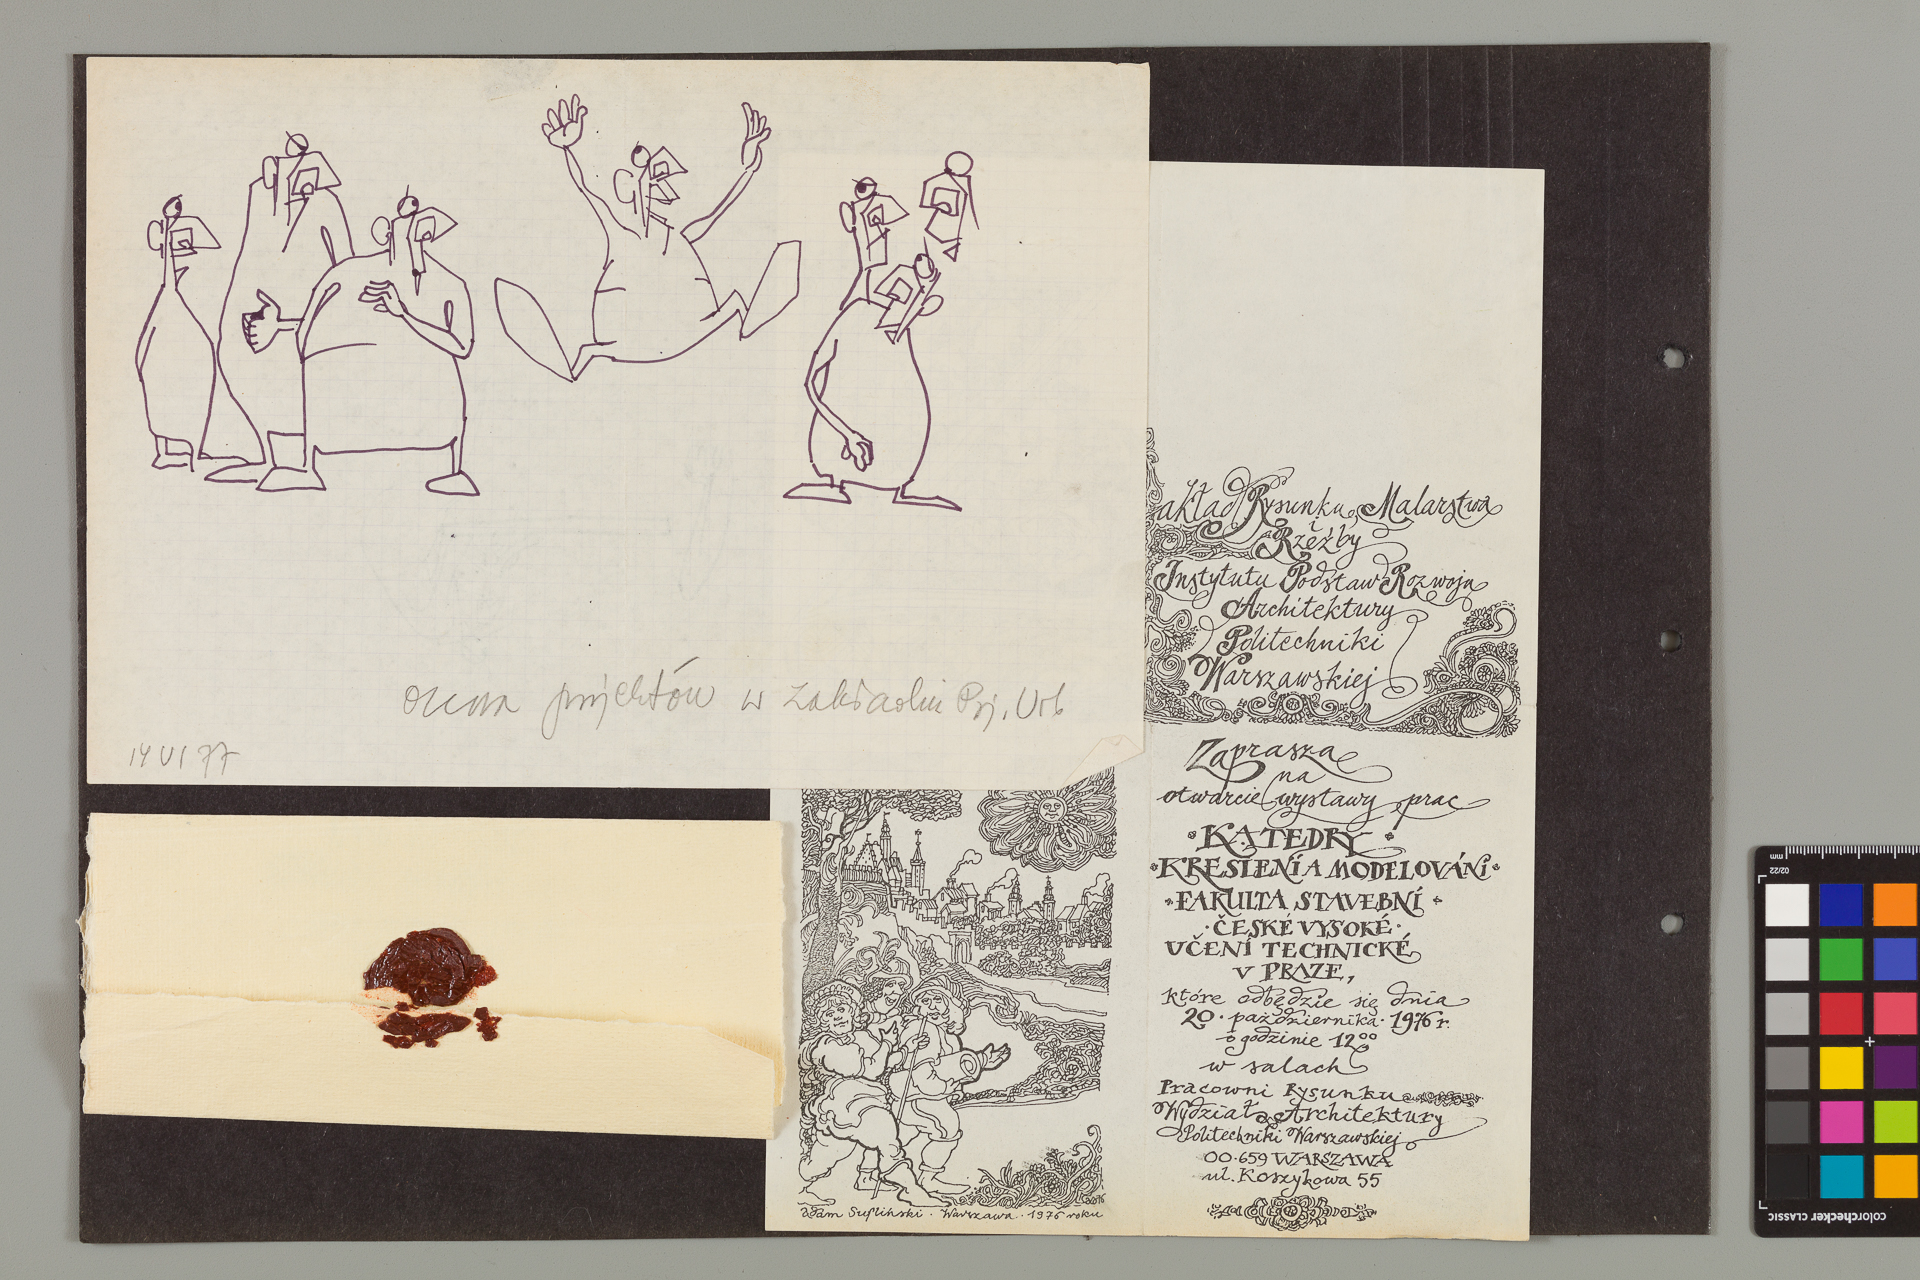 ocena projektów w zakładzie Prj. Urb
14 VI 77
akład Rysunku, Malarstwa
i
Rzeźby
Instytutu Podstaw Rozwoju
Architektury
Politechniki
Warszawskiej
Zaprasza
na
otwarcie wystawy prac
KATEDRY
KRESLENÍ A MODELOVÁNÍ
FAKULTA STAVEBNÍ
ČESKÉ VYSOKÉ
UČENÍ TECHNICKÉ
V PRAZE,
które odbędzie się dnia
20 · października · 1976 r.
o godzinie 12⁰⁰
w salach
Pracowni Rysunku
Wydziału Architektury
Politechniki Warszawskiej
00-659 WARSZAWA
ul. Koszykowa 55
Adam Sufliński · Warszawa · 1976 roku
mm
02/22
colorchecker CLASSIC